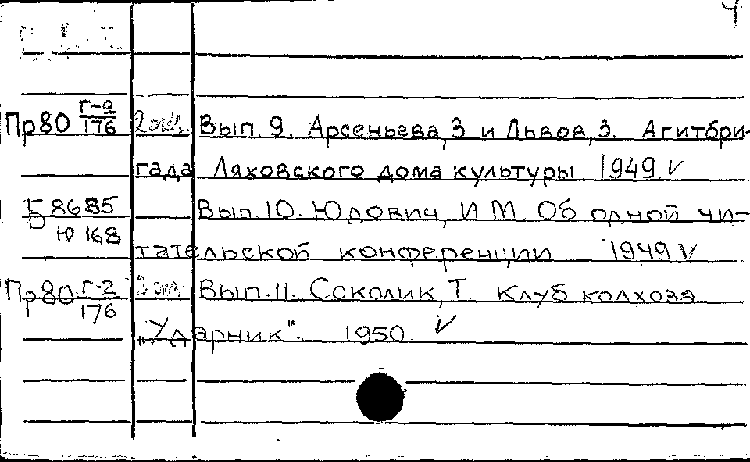 4
Пр80 Г-2/176 2 экз. Вып. 9. Арсеньева, З. и Львов, З. Агитбри-
гада Ляховского дома культуры 1949 V
Б 8685/Ю 168 Вып. 10. Юдович, И М. Об одной чи-
тательской конференции 1949 V
Пр80 Г-2/176 2 экз. Вып. 11. Соколик, Т. Клуб колхоза
„Ударник". 1950. V